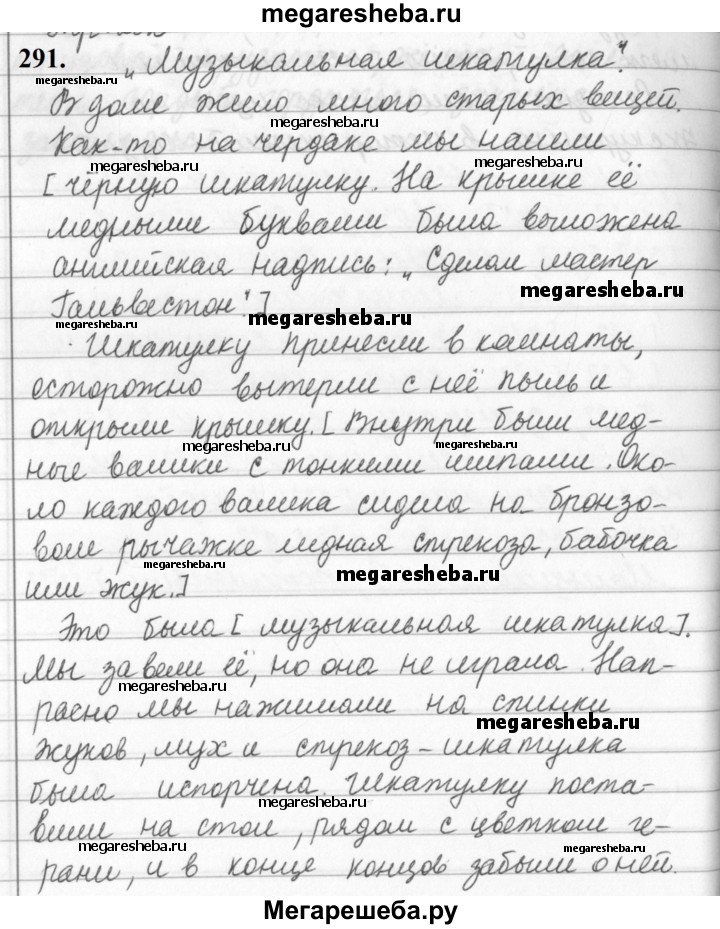 megaresheba.ru
291. „Музыкальная шкатулка“.
megaresheba.ru
megaresheba.ru
В доме жило много старых вещей.
megaresheba.ru
Как-то на чердаке мы нашли
megaresheba.ru
[ чёрную шкатулку. На крышке её
megaresheba.ru
медными буквами была выложена
английская надпись: „Сделал мастер
megaresheba.ru
Гальвестон“.]
megaresheba.ru
megaresheba.ru
Шкатулку принесли в комнаты,
осторожно вытерли с неё пыль и
открыли крышку. [ Внутри были мед-
megaresheba.ru
megaresheba.ru
ные валики с тонкими шипами. Око-
ло каждого валика сидела на бронзо-
вом рычажке медная стрекоза, бабочка
megaresheba.ru
или жук.]
Это была [ музыкальная шкатулка].
Мы завели её, но она не играла. Нап-
megaresheba.ru
расно мы нажимали на спинки
megaresheba.ru
жуков, мух и стрекоз – шкатулка
была испорчена. Шкатулку поста-
megaresheba.ru
вили на стол, рядом с цветком ге-
megaresheba.ru
megaresheba.ru
рани, и в конце концов забыли о ней.
Мегарешеба.ру